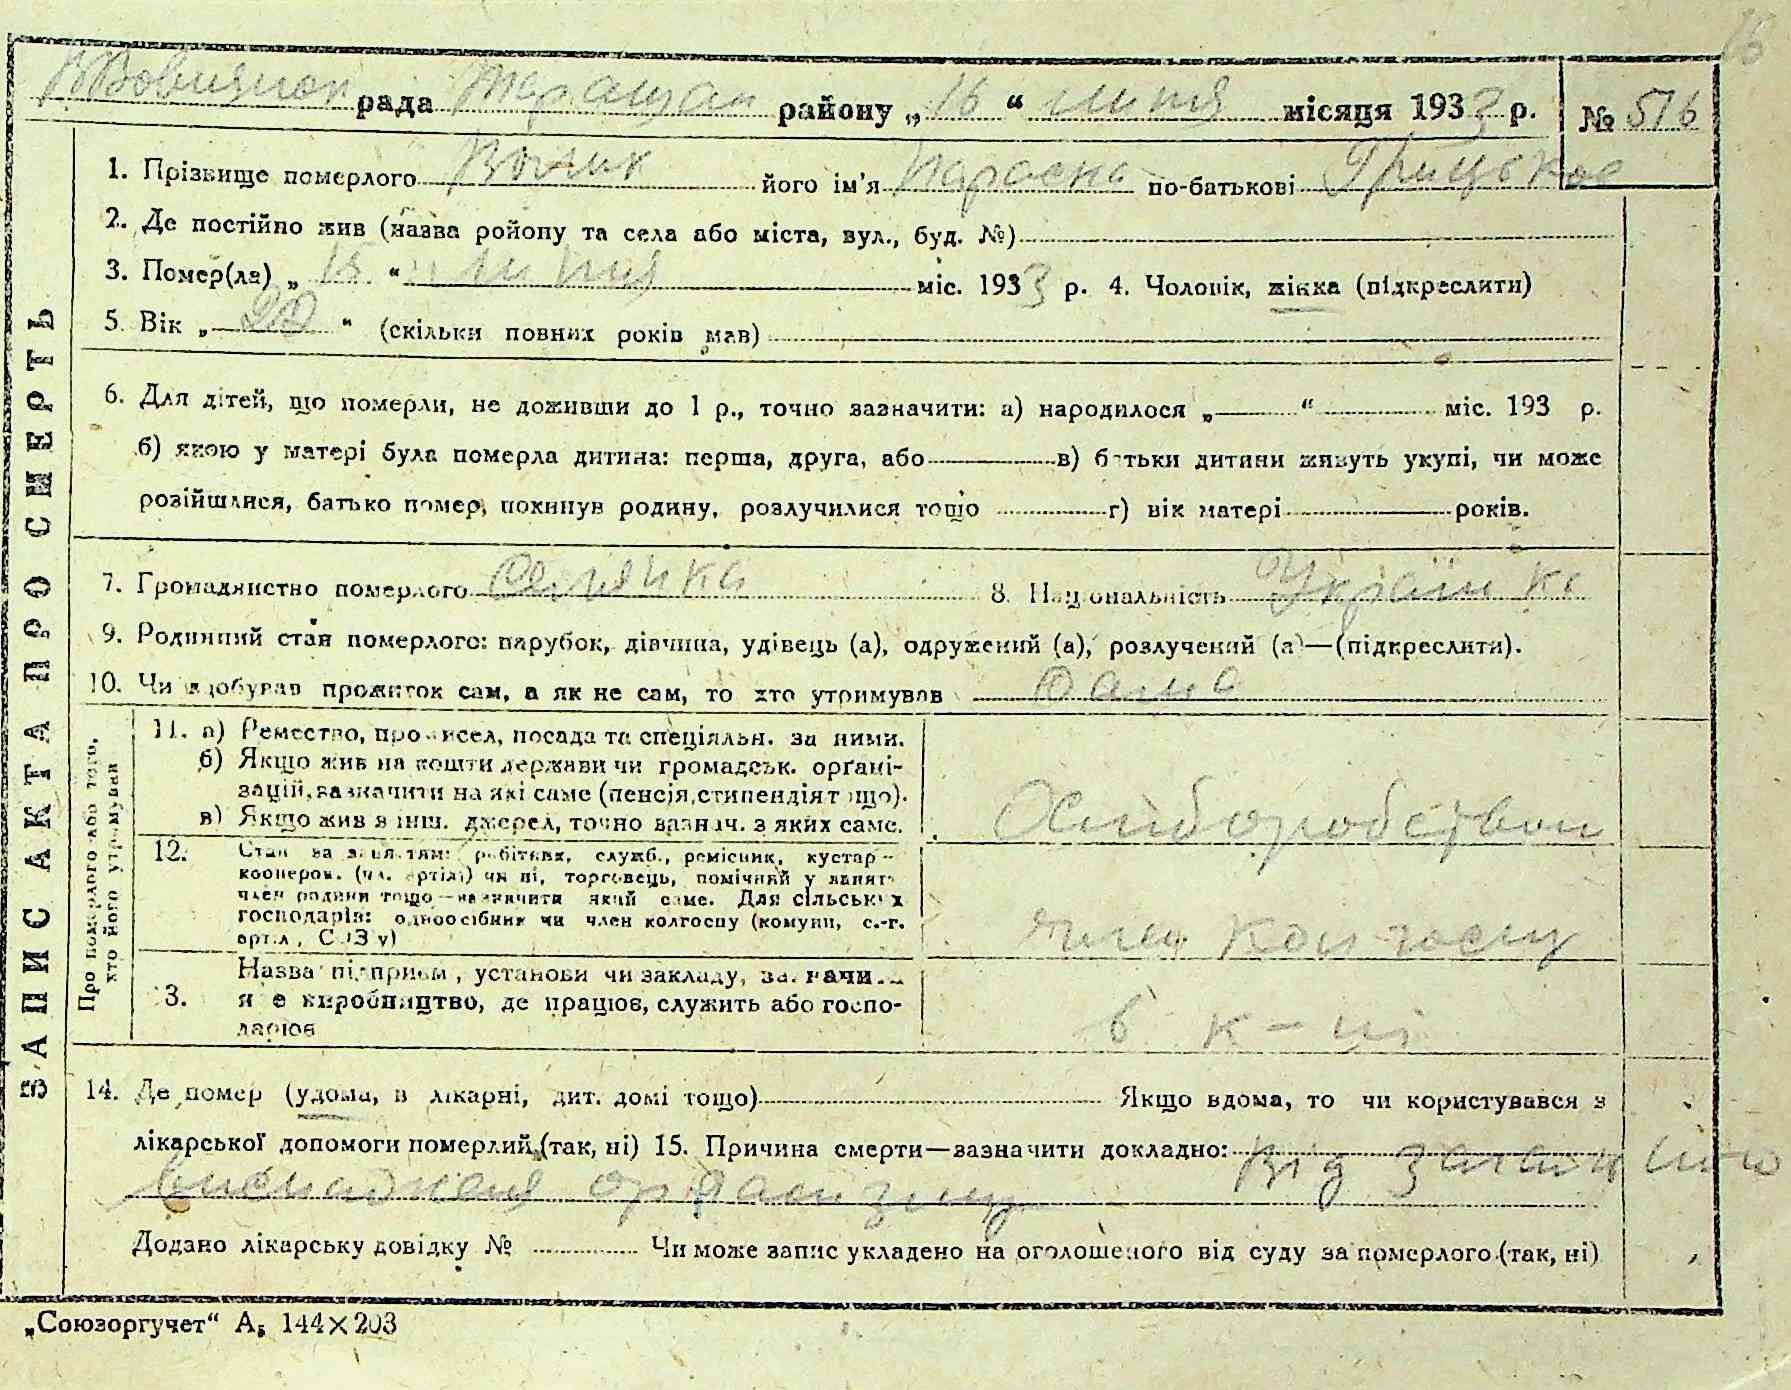 16
рада Таращан району „16“ липня місяця 1933 р. № 516
ЗАПИС АКТА ПРО СМЕРТЬ
1. Прізвище померлого його ім'я Параска по-батькові Грицьков
2. Де постійно жив (назва ройону та села або міста, вул., буд. №)
3. Помер(ла) „15“ липня міс. 1933 р. 4. Чоловік, жінка (підкреслити)
5. Вік „20“ (скільки повних років мав)
6. Для дітей, що померли, не доживши до 1 р., точно зазначити: а) народилося „ “ міс. 193 р.
б) якою у матері була померла дитина: перша, друга, або в) батьки дитини живуть укупі, чи може
розійшлися, батько помер, покинув родину, розлучилися тощо г) вік матері років.
7. Громадянство померлого Селянка 8. Національність Українка
9. Родинний стан померлого: парубок, дівчина, удівець (а), одружений (а), розлучений (а)—(підкреслити).
10. Чи здобував прожиток сам, а як не сам, то хто утримував Сама
Про померлого або того, хто його утримував
11. а) Ремество, промисел, посада та спеціяльн. за ними.
б) Якщо жив на кошти держави чи громадськ. органі-
зацій, зазначити на які саме (пенсія, стипендія тощо).
в) Якщо жив з інш. джерел, точно зазнач. з яких саме. Хліборобством
12. Стан за заняттям: робітник, служб., ремісник, кустар-
коопером. (чл. артілі) чи ні, торговець, помічний у занят.
член родини тощо—зазначити який саме. Для сільських
господарів: одноосібник чи член колгоспу (комуни, с.-г.
артіл., СОЗ у) член колгоспу
Назва підприєм., установи чи закладу, зазначи...
3. яке виробництво, де працює, служить або госпо-
дарює в к-пі
14. Де помер (удома, в лікарні, дит. домі тощо) Якщо вдома, то чи користувався з
лікарської допомоги померлий (так, ні) 15. Причина смерти—зазначити докладно: від загального
виснаження організму
Додано лікарську довідку № Чи може запис укладено на оголошеного від суду за померлого (так, ні)
„Союзоргучет“ А5 144×203